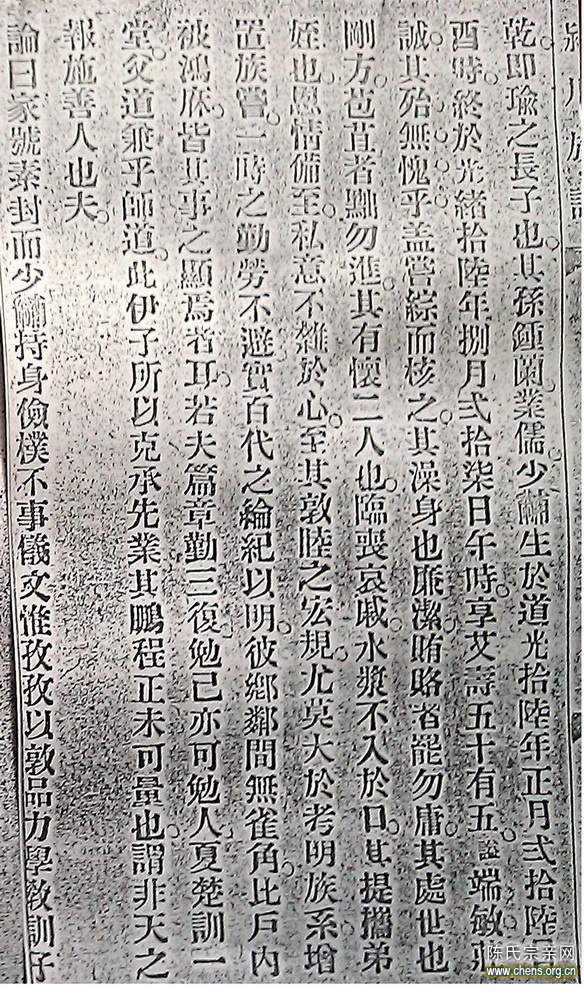 乾即瑜之長子也其孫鍾蘭業儒少黼生於道光拾陸年正月弍拾陸日
酉時終於光緒拾陸年捌月弍拾柒日午時享艾壽五十有五諡端敏
誠其殆無愧乎盖嘗綜而核之其澡身也廉潔賄賂者罷勿庸其處世也
剛方芭苴者黜勿進其有懷二人也臨喪哀戚水漿不入於口其提攜弟
姪也恩情備至私意不雜於心至其敦睦之宏規尤莫大於考明族系增
置族嘗一時之勤勞不避實百代之綸紀以明彼鄉鄰間無雀角比戶內
被鴻庥皆其事之顯焉者耳若夫篇章勤三復勉己亦可勉人夏楚訓一
堂父道兼乎師道此伊子所以克承先業其鵬程正未可量也謂非天之
報施善人也夫
論曰家號素封而少黼持身儉樸不事儀文惟孜孜以敦品力學教訓子
陳氏宗亲网
www.chens.org.cn